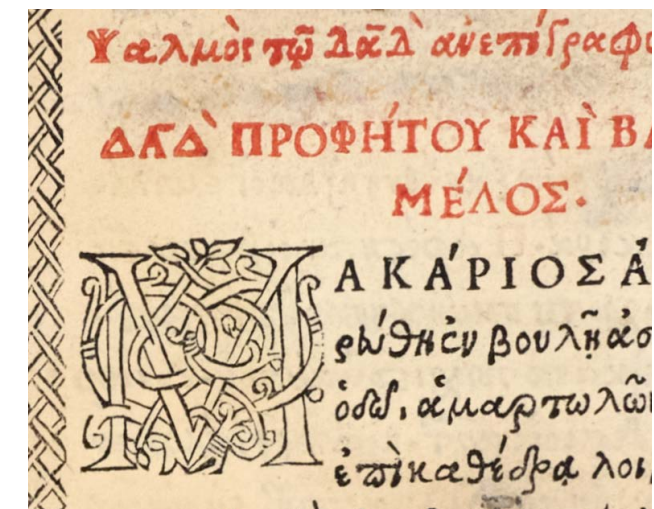 Ψαλμὸς τῷ Δαδ̀ ἀνεπίγραφο
ΔΑΔ̀ ΠΡΟΦΉΤΟΥ ΚΑῚ ΒΑ
ΜΈΛΟΣ.
ΜΑΚΆΡΙΟΣ Ἀ
ρεύθη ἐν βουλῇ ἀσ
ὁδῷ, ἁμαρτωλῶν
ἐπὶ καθέδρᾳ λοι